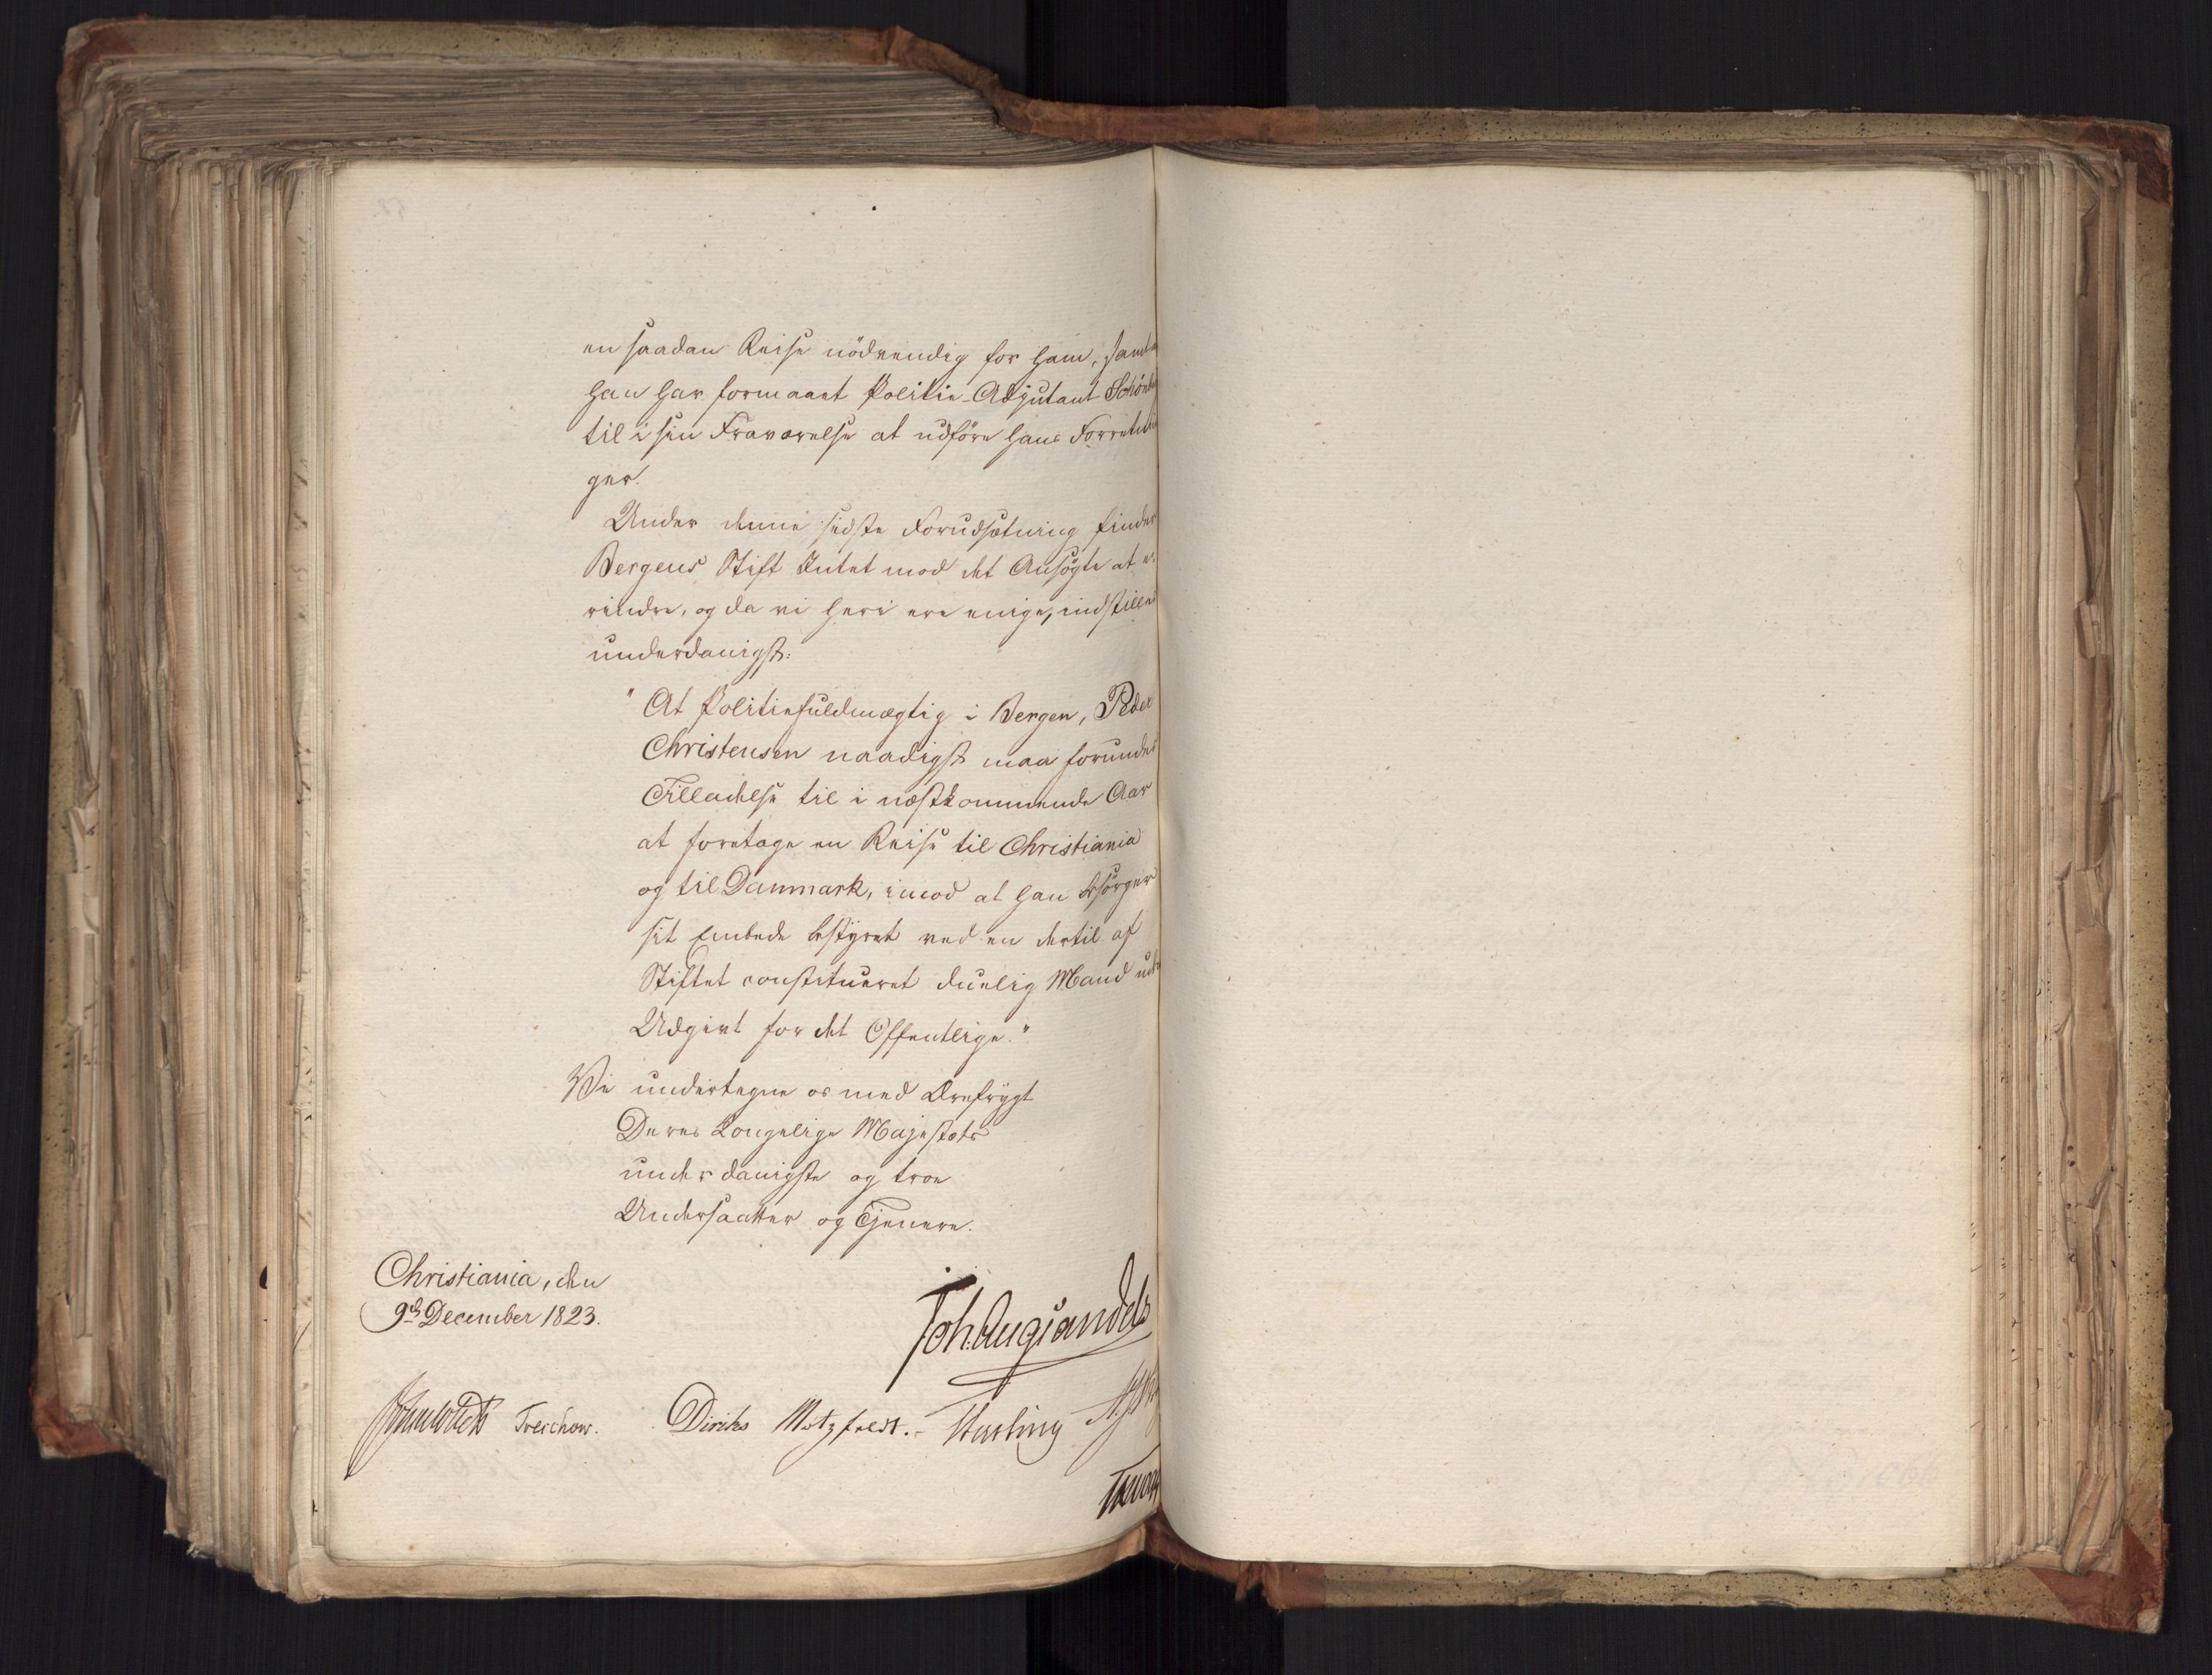 en saadan Reise nödvendig for ham, samt
han har formaaet Politie-Adjutant
til i sin Fraværelse at udföre hans Forretnin
ger.
Under denne sidste Forudsætning finder
Bergens Stift Intet mod det Ansögte at e
rindre, og da vi heri ere enige, indstilles
underdanigst:
"At Politiefuldmægtig i Bergen, Peder
Christensen naadigst maa forundes
Tilladelse til i næstkommende Aar
at foretage en Reise til Christiania
og til Danmark, imod at han besörger
sit Embede bestyret ved en dertil af
Stiftet constitueret duelig Mand uden
Udgivt for det Offentlige."
Vi undertegne os med Ærefrygt
Deres Kongelige Majestæts
underdanigste og troe
Undersaatter og Tjenere.
Christiania, den
9de December 1823.
Joh. Aug. Sandels
Sommerhielm Treschow. Diriks Motzfeldt.